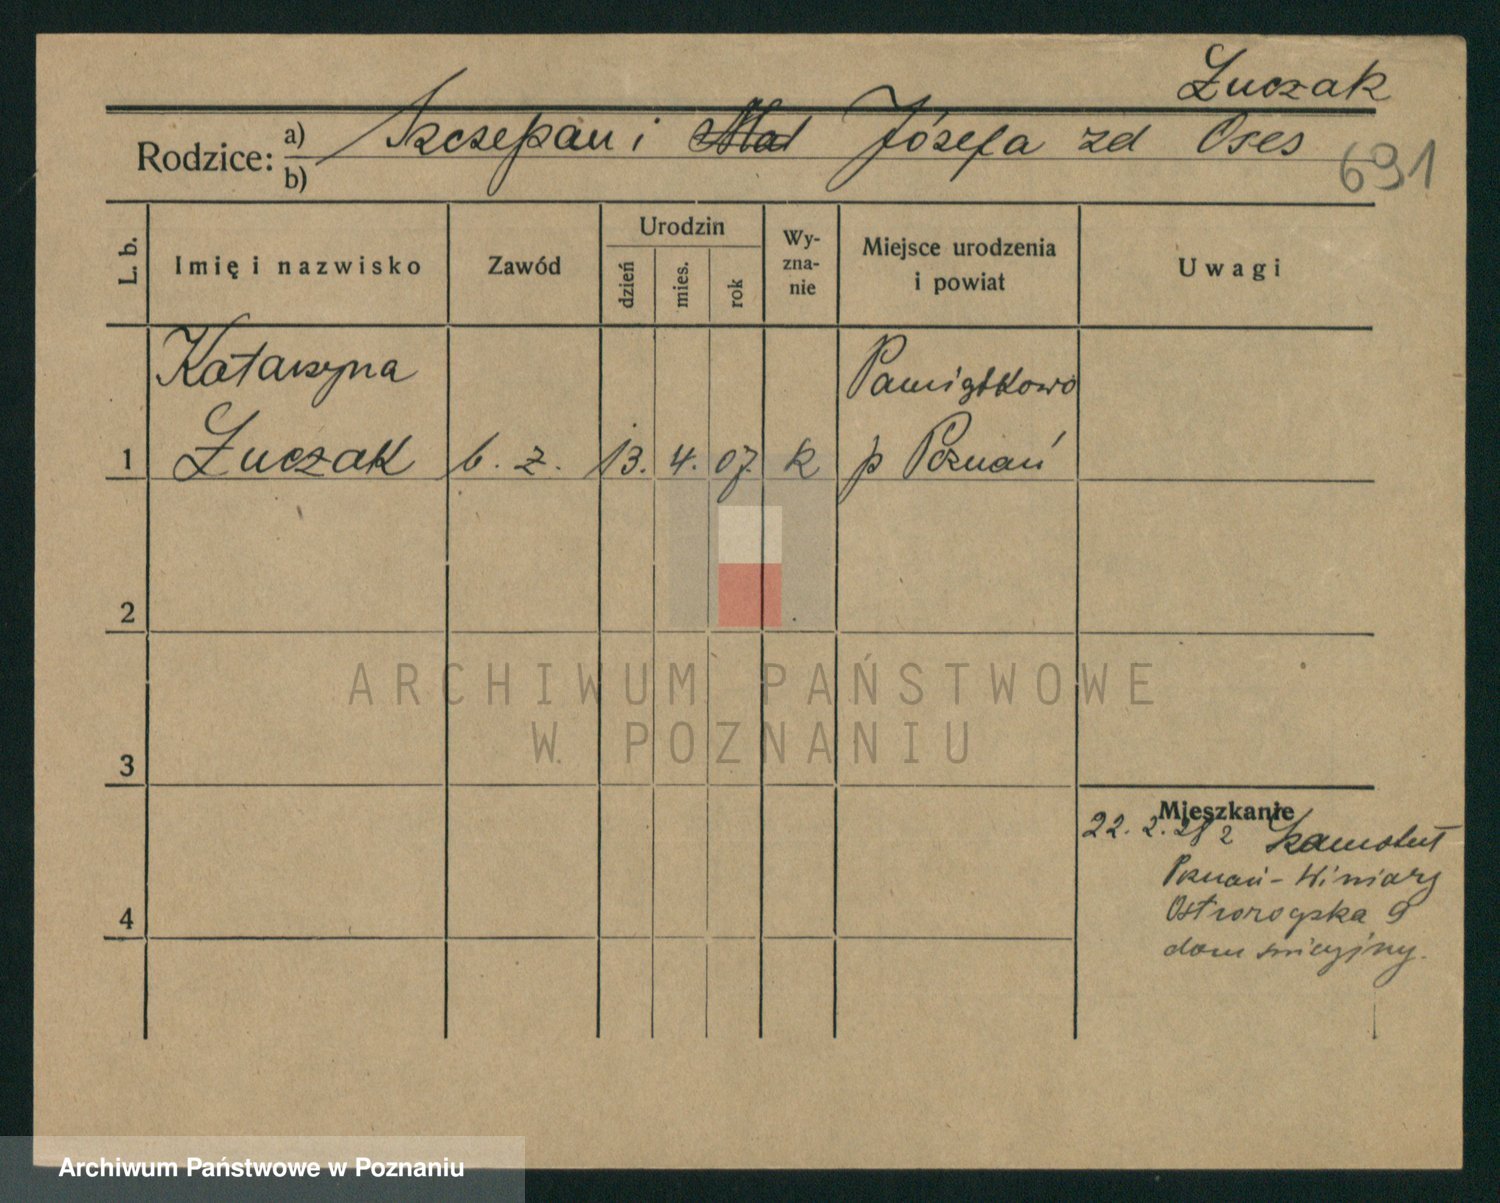 Łuczak
Rodzice: a) Szczepan i Józefa zd Oses
b)
691
L. b.
Imię i nazwisko
Zawód
Urodzin
dzień
mies.
rok
Wy-
zna-
nie
Miejsce urodzenia
i powiat
Uwagi
Katarzyna
Pamiątkowo
1 Łuczak b. z. 13. 4. 07. k p Poznań
2
3
4
ARCHIWUM PAŃSTWOWE
W POZNANIU
Mieszkanie
22. 2. 28 z Szamotuł
Poznań - Winiary
Ostrorogska 9
dom
Archiwum Państwowe w Poznaniu